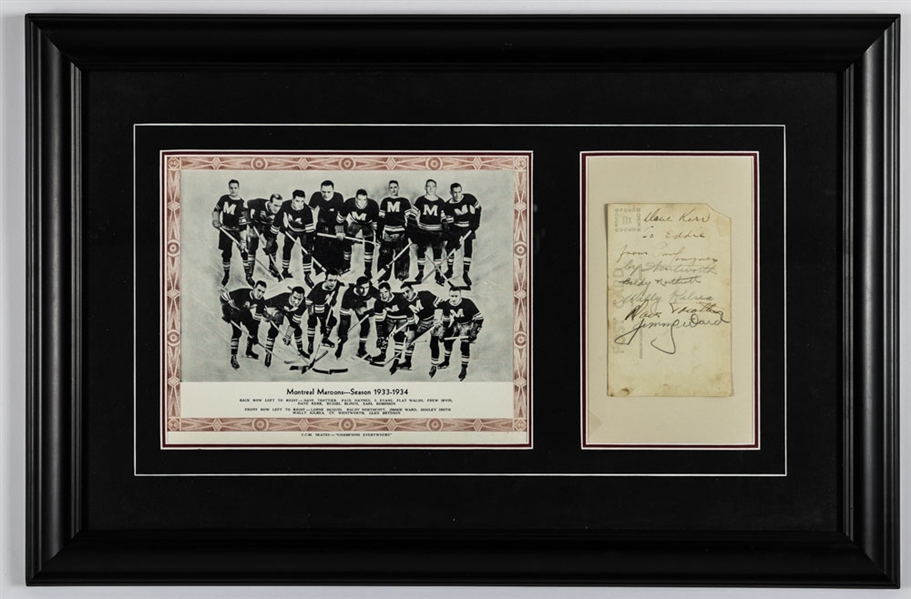 M M M M M M M M
M M M M M M M
Montreal Maroons—Season 1933-1934
BACK ROW LEFT TO RIGHT—DAVE TROTTIER, PAUL HAYNES, S. EVANS, FLAT WALSH, FREW IRVIN,
DAVE KERR, RUSSEL BLINCO, EARL ROBINSON
FRONT ROW LEFT TO RIGHT— BALDY NORTHCOTT, JIMMIE WARD, HOOLEY SMITH
WALLY KILREA, CY. WENTWORTH, GLEN BRYDSON
C.C.M. SKATES—"CHAMPIONS EVERYWHERE"
Dave Kerr
To Eddie
from
Cy Wentworth
Baldy Northcott
Wally Kilrea
Dave Trottier
Jimmy Ward